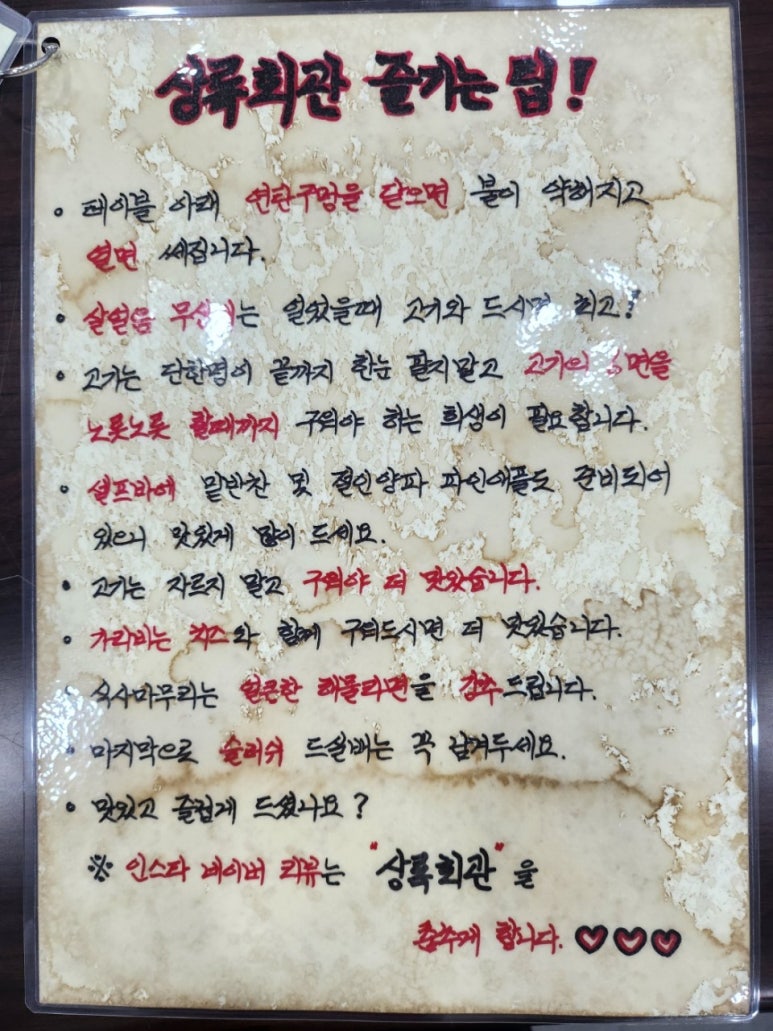 상록회관 즐기는 팁!
• 테이블 아래 연탄구멍을 닫으면 불이 약해지고
열면 쎄집니다.
• 살얼음 는 일 고기와 드시면 최고!
• 고기는 단한명이 끝까지 한눈 팔지말고 고기의 6면을
노릇노릇 할때까지 구워야 하는 희생이 필요합니다.
• 셀프바에 밑반찬 및 절인양파 파인애플도 준비되어
있으니 맛있게 많이 드세요.
• 고기는 자르지 말고 구워야 더 맛있습니다.
• 가리비는 치즈와 함께 구워드시면 더 맛있습니다.
• 식사마무리는 얼큰한 해물라면을 강추드립니다.
• 마지막으로 슬러쉬 드실배는 꼭 남겨두세요.
• 맛있고 즐겁게 드셨나요?
※ 인스타 네이버 리뷰는 "상록회관"을
춤추게 합니다. ♥♥♥